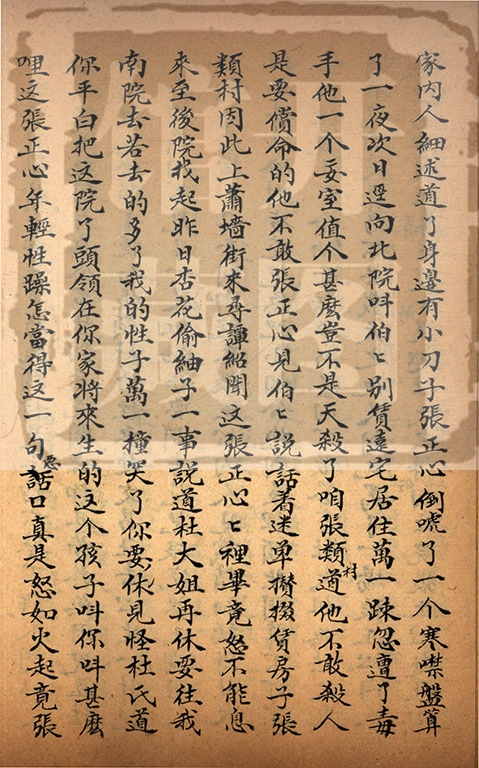 家内人細述道了身邊有小刀子張正心倒唬了一个寒噤盤算
了一夜次日逕向北院呌伯〻別賃遠宅居住萬一踈忽遭了毒
手他一个妾室值个甚麽豈不是天殺了咱張類村道他不敢殺人
是要償命的他不敢張正心見伯〻說話着迷单攅掇賃房子張
類村因此上蕭墻街來尋譚紹聞这張正心〻裡畢竟怒不能息
來至後院找起昨日杏花偷紬子一事說道杜大姐再休要往我
南院去若去的多了我的性子萬一撞突了你要休見怪杜氏道
你平白把这院丫頭領在你家將來生的这个孩子呌你呌甚麽
哩这張正心年輕性躁怎當得这一句惡話口真是怒如火起竟張